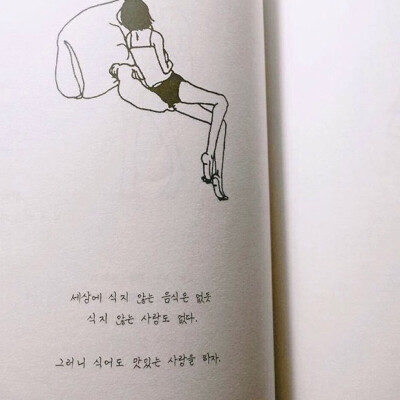 세상에 식지 않는 음식은 없듯
식지 않는 사랑도 없다.
그러니 식어도 맛있는 사랑을 하자.